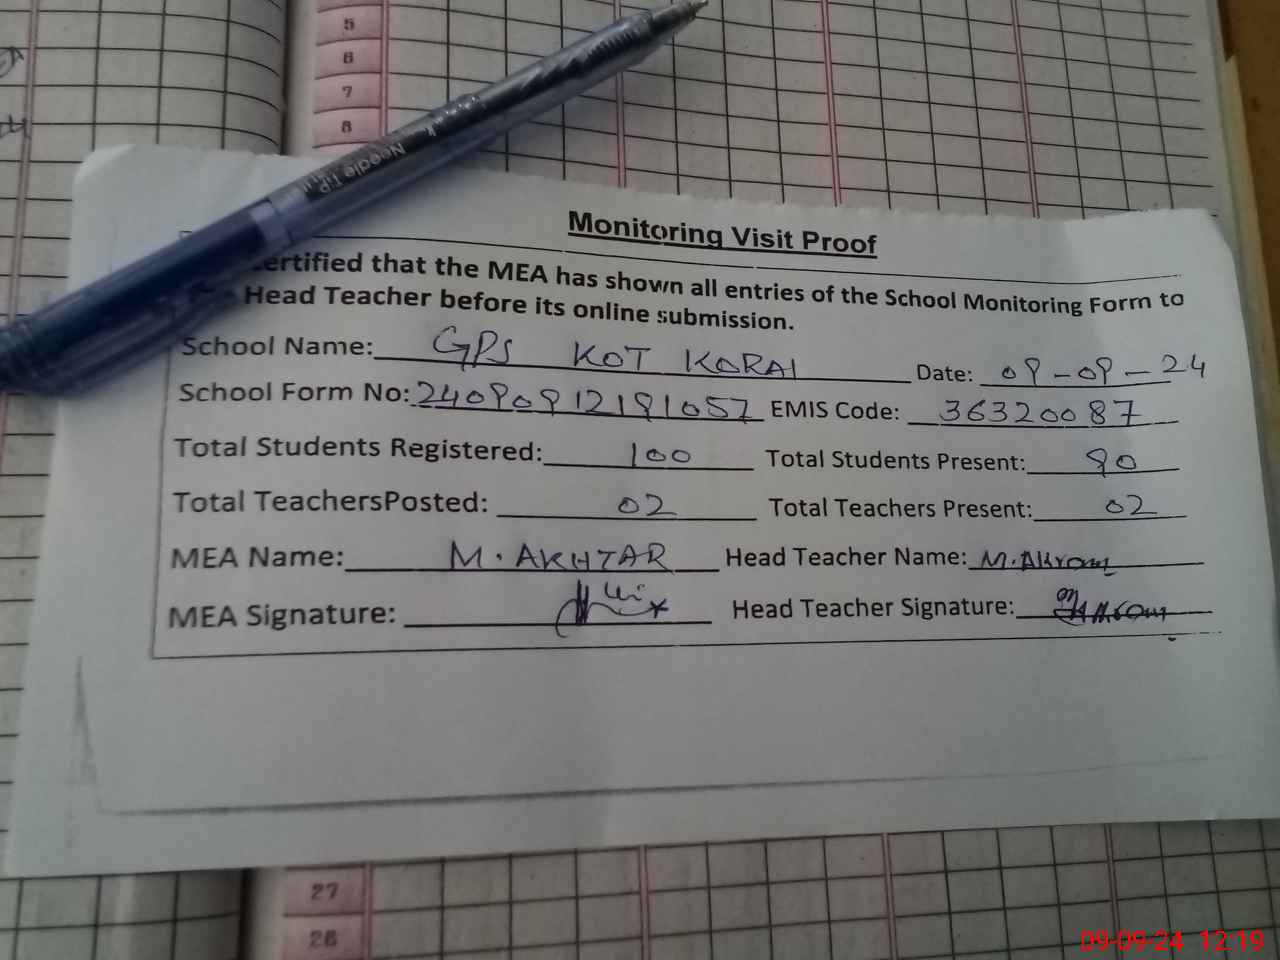 5
6
7
8
Needle Tip
Monitoring Visit Proof
ertified that the MEA has shown all entries of the School Monitoring Form to
Head Teacher before its online submission.
School Name: GPS KOT KORAI Date: 09-09-24
School Form No: 24090912191057 EMIS Code: 36320087
Total Students Registered: 100 Total Students Present: 90
Total TeachersPosted: 02 Total Teachers Present: 02
MEA Name: M. AKHTAR Head Teacher Name: M. Akram
MEA Signature: Head Teacher Signature:
27
28
09-09-24 12:19